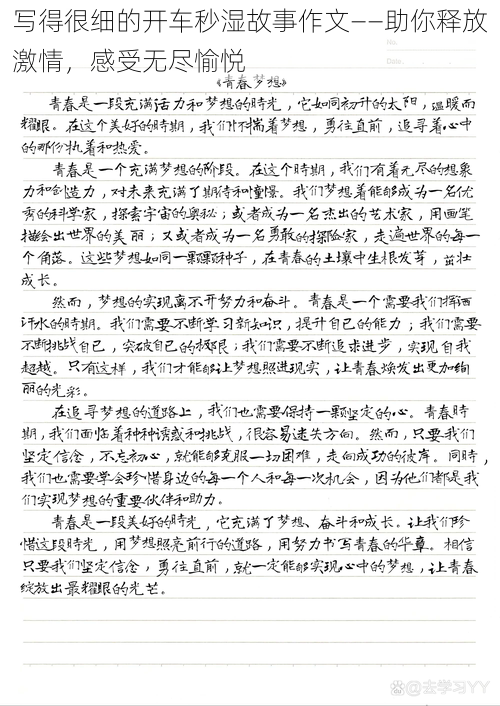 写得很细的开车秒湿故事作文——助你释放
激情，感受无尽愉悦
No.
Date.
《青春梦想》
青春是一段充满活力和梦想的时光，它如同初升的太阳，温暖而
耀眼。在这个美好的时期，我们怀揣着梦想，勇往直前，追寻着心中
的那份执着和热爱。
青春是一个充满梦想的阶段。在这个时期，我们有着无尽的想象
力和创造力，对未来充满了期待和憧憬。我们梦想着能够成为一名优
秀的科学家，探索宇宙的奥秘；或者成为一名杰出的艺术家，用画笔
描绘出世界的美丽；又或者成为一名勇敢的探险家，走遍世界的每一
个角落。这些梦想如同一颗颗种子，在青春的土壤中生根发芽，茁壮
成长。
然而，梦想的实现离不开努力和奋斗。青春是一个需要我们挥洒
汗水的时期。我们需要不断学习新知识，提升自己的能力；我们需要
不断挑战自己，突破自己的极限；我们需要不断追求进步，实现自我
超越。只有这样，我们才能够让梦想照进现实，让青春焕发出更加绚
丽的光彩。
在追寻梦想的道路上，我们也需要保持一颗坚定的心。青春时
期，我们面临着种种诱惑和挑战，很容易迷失方向。然而，只要我们
坚定信念，不忘初心，就能够克服一切困难，走向成功的彼岸。同时，
我们也需要学会珍惜身边的每一个人和每一次机会，因为他们都是我
们实现梦想的重要伙伴和助力。
青春是一段美好的时光，它充满了梦想、奋斗和成长。让我们珍
惜这段时光，用梦想照亮前行的道路，用努力书写青春的华章。相信
只要我们坚定信念，勇往直前，就一定能够实现心中的梦想，让青春
绽放出最耀眼的光芒。
@去学习YY